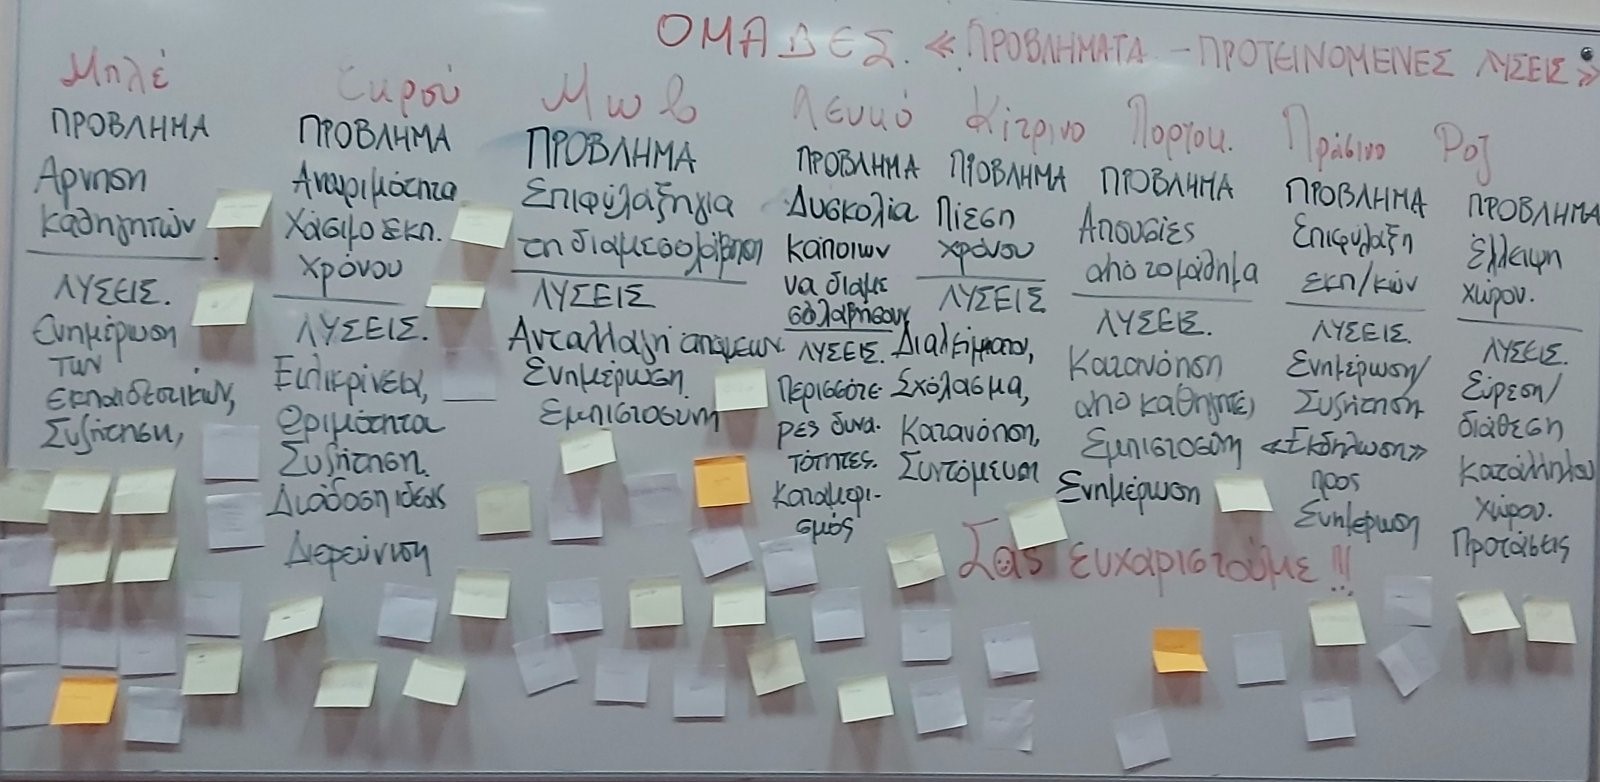 ΟΜΑΔΕΣ. «ΠΡΟΒΛΗΜΑΤΑ - ΠΡΟΤΕΙΝΟΜΕΝΕΣ ΛΥΣΕΙΣ»
Μπλέ
ΠΡΟΒΛΗΜΑ
Αρνηση
καθηγητών
ΛΥΣΕΙΣ.
Ενημέρωση
των
εκπαιδευτικών,
Συζήτηση,
ΠΡΟΒΛΗΜΑ
Ανωριμότητα
Χάσιμο εκπ.
χρόνου
ΛΥΣΕΙΣ.
Ειλικρίνεια,
Ωριμότητα
Συζήτηση.
Διάδοση ιδέας
Διερεύνιση
Μωβ
ΠΡΟΒΛΗΜΑ
Επιφύλαξη για
τη διαμεσολάβηση
ΛΥΣΕΙΣ
Ανταλλαγή απόψεων.
Ενημέρωση.
Εμπιστοσύνη
Λευκό
ΠΡΟΒΛΗΜΑ
Δυσκολία
κάποιων
να διαμε
σολαβήσουν
ΛΥΣΕΙΣ.
Περισσότε
ρες δυνα.
τότητες.
Καταμερι-
σμός
Κίτρινο
ΠΡΟΒΛΗΜΑ
Πίεση
χρόνου
ΛΥΣΕΙΣ
Διαλείμματα,
Σχόλασμα,
Κατανόηση,
Συντόμευση
Πορτοκ.
ΠΡΟΒΛΗΜΑ
Απουσίες
από το μάθημα
ΛΥΣΕΙΣ.
Κατανόηση
από καθηγητές,
Εμπιστοσύνη
Ενημέρωση
Πράσινο
ΠΡΟΒΛΗΜΑ
Επιφύλαξη
εκπ/κών
ΛΥΣΕΙΣ.
Ενημέρωση/
Συζήτηση
«Εκδήλωση»
προς
Ενημέρωση
Ροζ
ΠΡΟΒΛΗΜΑ
Έλλειψη
χώρου.
ΛΥΣΕΙΣ.
Εύρεση/
διάθεση
Κατάλληλου
χώρου.
Προτάσεις
Σας ευχαριστούμε!!!